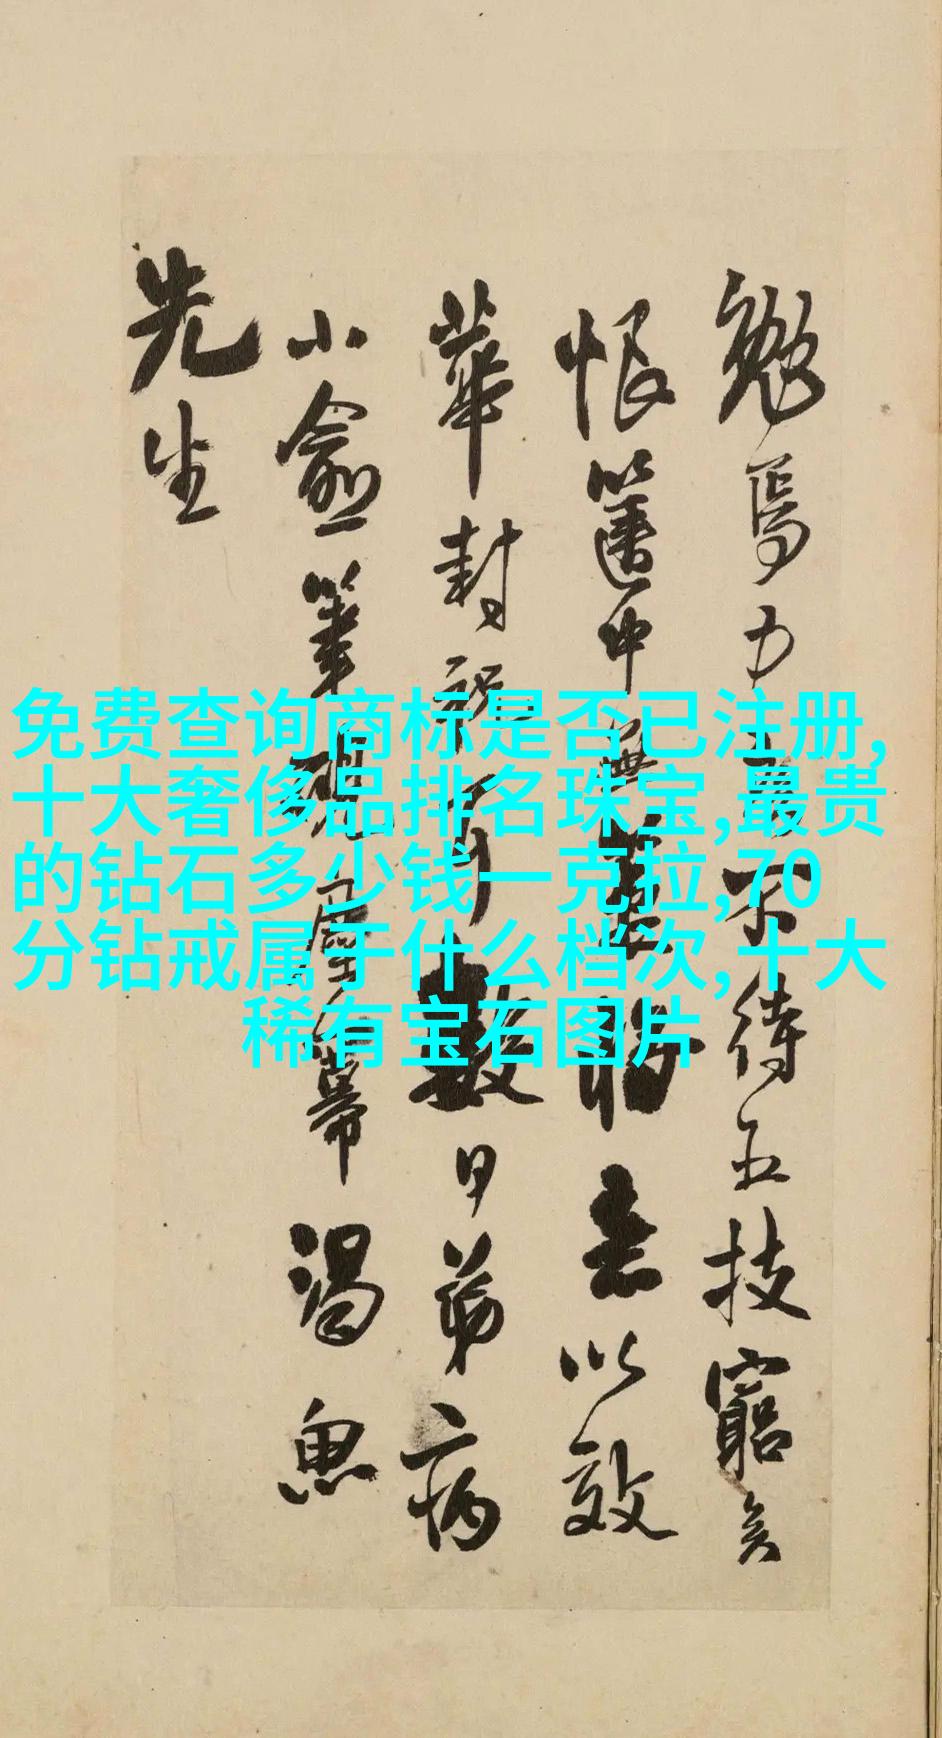 勉焉力
不待五技窮矣
恨篋中無
以效
華封祝
數日弟病
小愈筆硯
渴思
先生
免费查询商标是否已注册,
十大奢侈品排名珠宝,最贵
的钻石多少钱一克拉,70
分钻戒属于什么档次,十大
稀有宝石图片